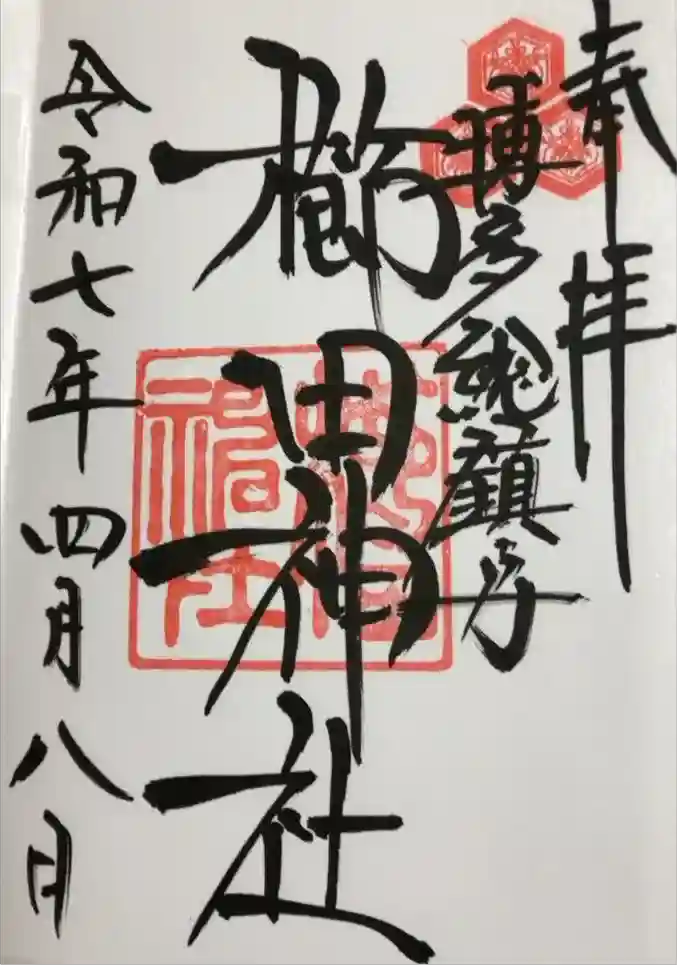 奉拝
博多総鎮守
櫛田神社
令和七年四月八日